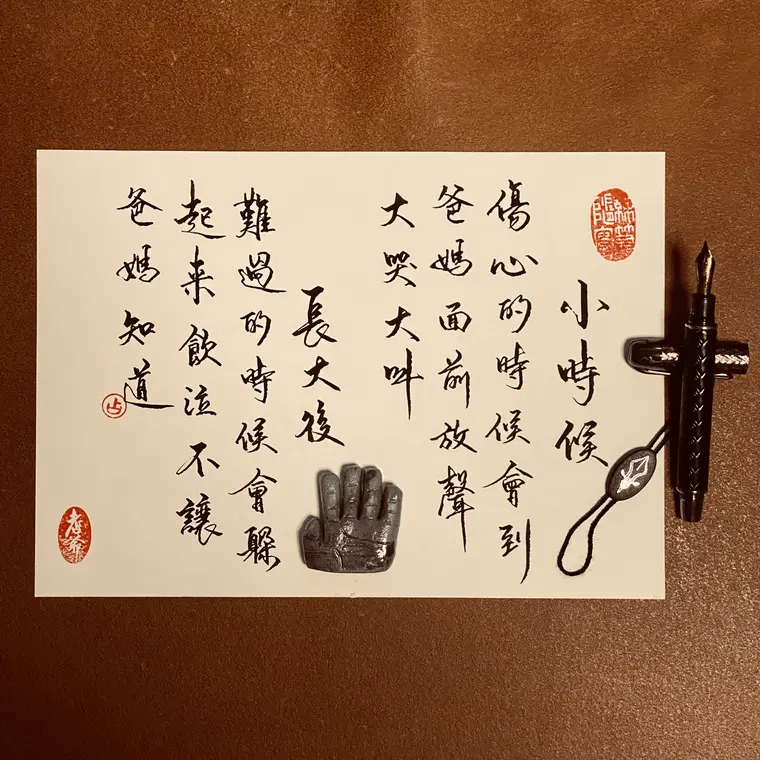 小時候
傷心的時候會到
爸媽面前放聲
大哭大叫
長大後
難過的時候會躲
起来飲泣不讓
爸媽知道